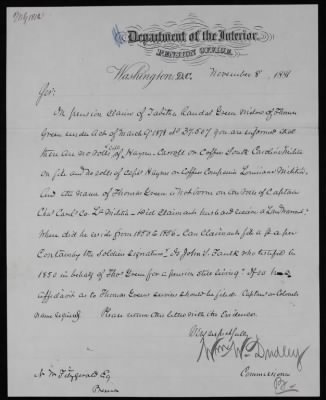 Department of the Interior,
PENSION OFFICE,
Washington, D.C. November 8", 1881
Sir:
In pension claim of Tabitha Randal Green widow of Thomas
Green under Act of March 9" 1878 No 27.507 you are informed that
there are no rolls of Capts Haynes Carroll or Coffin South Carolina Militia
on file and no rolls of Capts Haynes or Coffin Companies Louisiana Militia
and the name of Thomas Green is not borne on the rolls of Captain
Chas Co. La Militia. Did Claimants husband receive a Land Warrant.
Where did he reside from 1850 to 1856. Can Claimant file a paper
Containing the Soldiers Signature. Is John S. Faulk who testified in
1850 in behalf of Thos Green for a pension still living. If so his
affidavit as to Thomas Greens service should be filed. Captain or Colonels
name required. Please return this letter with the Evidence.
Very respectfully,
Wm W. Dudley
Commissioner
N. W. Fitzgerald Esq
Present